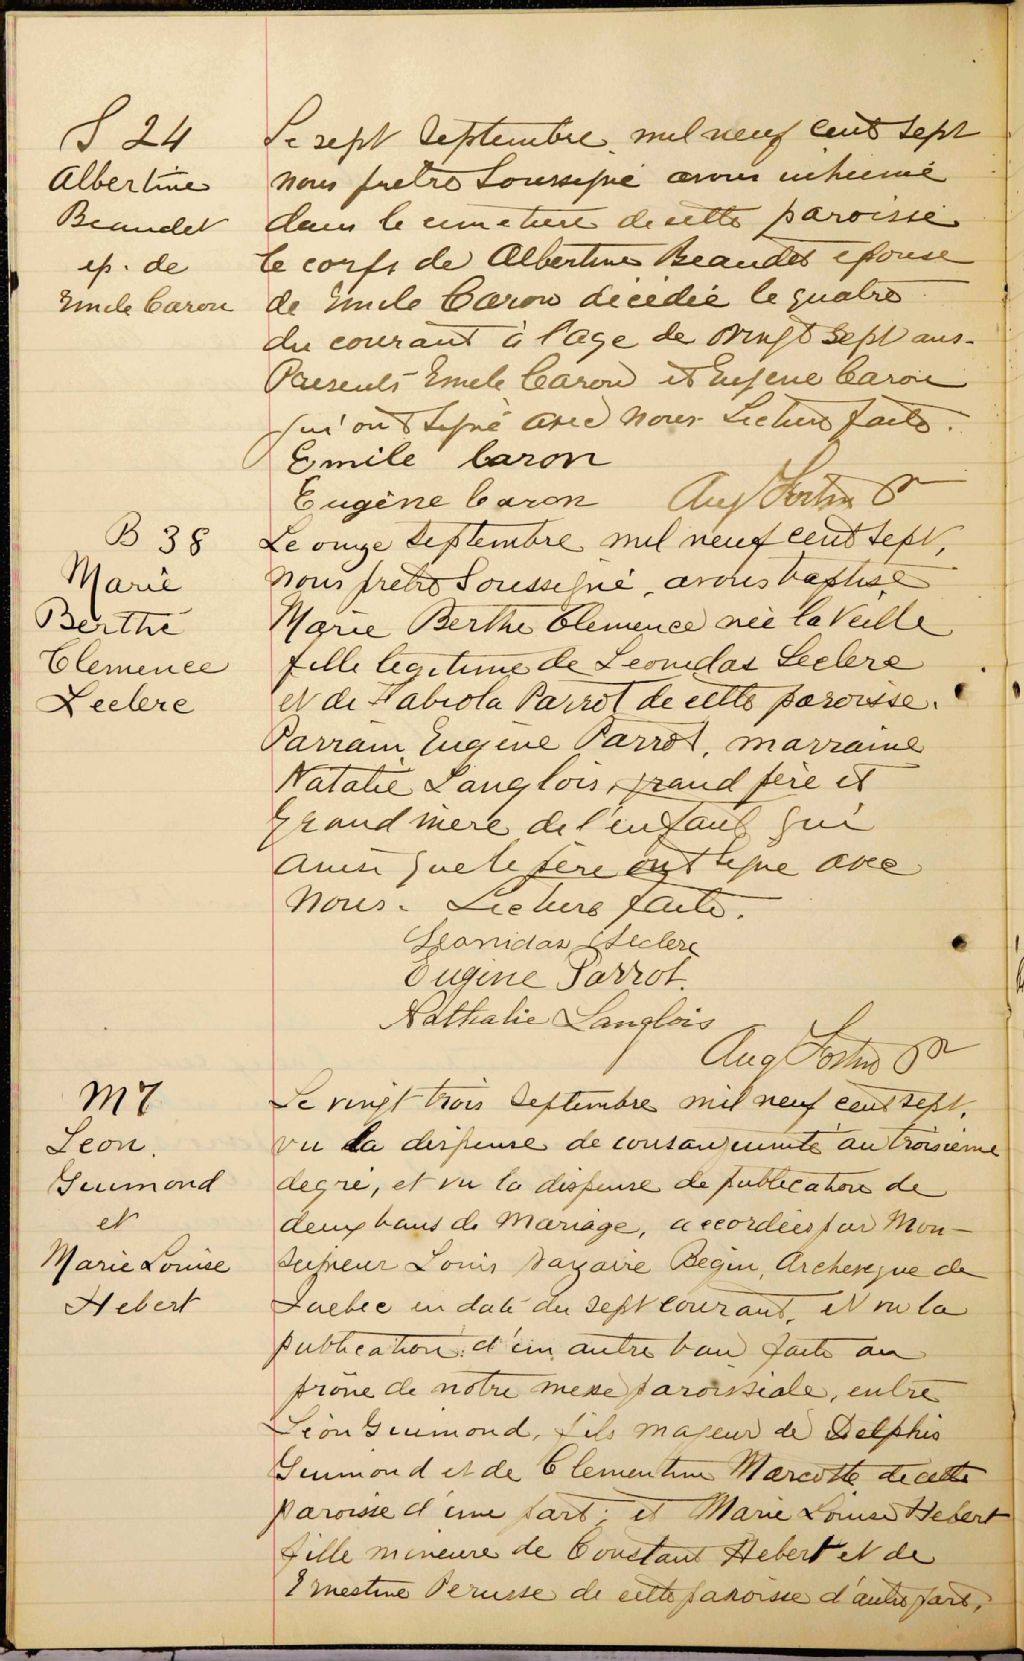 S 24
Albertine
Beaudet
ep. de
Emile Caron
Le sept Septembre mil neuf cent sept
nous pretre Soussigné avons inhumé
dans le cimetiere de cette paroisse
le corps de Albertine Beaudet epouse
de Emile Caron décédée le quatre
du courant à l'age de vingt sept ans.
Presents Emile Caron et Eugene Caron
qui ont signé avec nous. Lecture faite.
Emile Caron
Eugène Caron Aug Fortin Ptr
B 38
Marie
Berthe
Clemence
Leclerc
Le onze Septembre mil neuf cent sept,
nous pretre Soussigné, avons baptisé
Marie Berthe Clemence née la Veille
fille legitime de Leonidas Leclerc
et de Fabiola Parrot de cette paroisse.
Parrain Eugène Parrot, marraine
Natalie Langlois, grand père et
Grand mère de l'enfant qui
ainsi que le père ont signé avec
nous. Lecture faite.
Leonidas Leclerc
Eugène Parrot.
Nathalie Langlois
Aug Fortin Ptr
M 7
Leon
Guimond
et
Marie Louise
Hebert
Le vingt trois Septembre mil neuf cent sept,
vu la dispense de consanguinité au troisième
degré, et vu la dispense de publication de
deux bans de Mariage, accordées par Mon-
seigneur Louis Nazaire Begin, Archevêque de
Quebec en date du sept courant, et vu la
publication d'un autre ban faite au
prône de notre messe paroissiale, entre
Léon Guimond, fils majeur de Delphis
Guimond et de Clementine Marcotte de cette
paroisse d'une part; et Marie Louise Hebert
fille mineure de Constant Hebert et de
Ernestine Perusse de cette paroisse d'autre part,